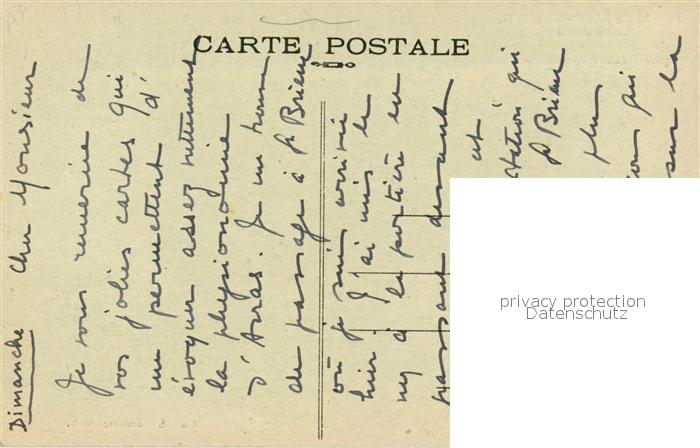 CARTE POSTALE
Dimanche
Cher Monsieur
Je vous remercie de
vos jolies cartes qui
me permettent d'
évoquer assez nettement
la physionomie
d'Arras. Je me trouve
de passage à St Brieuc
où je suis arrivée
hier. J'ai mis le
nez à la portière en
passant devant
et
station qui
St Brieuc
plus
qui
sur la
privacy protection
Datenschutz